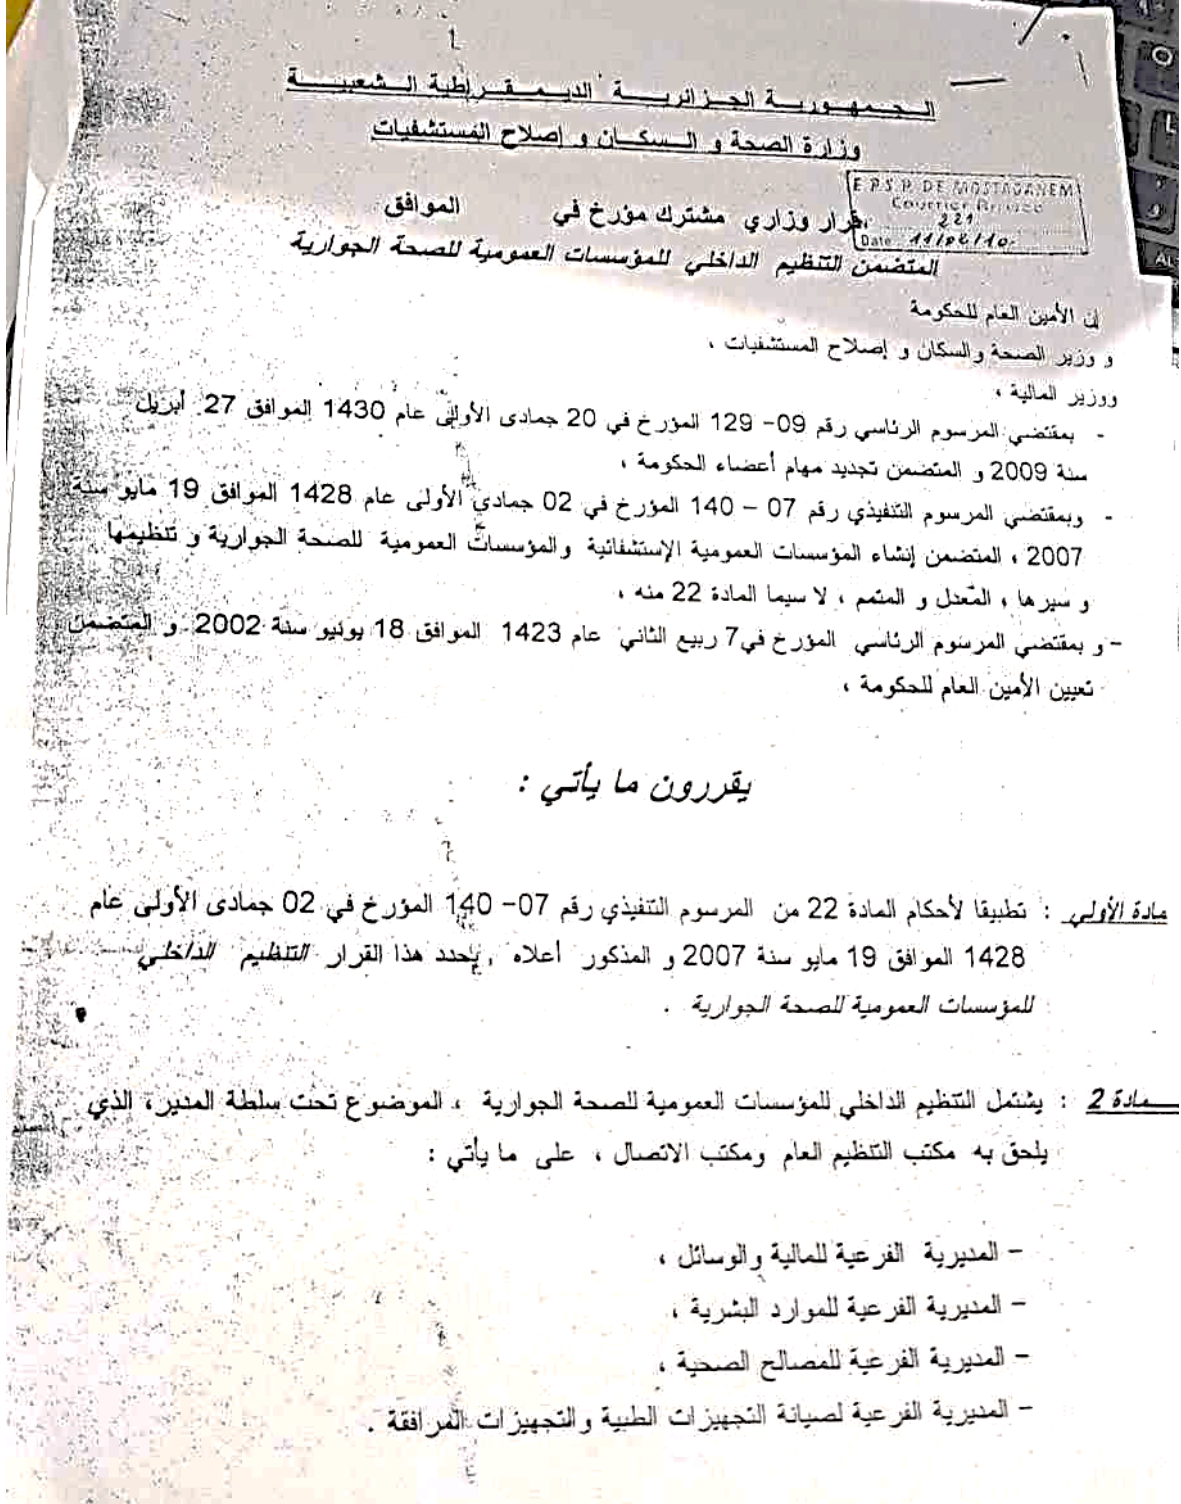 1
الجمهورية الجزائرية الديمقراطية الشعبية
وزارة الصحة و السكان و إصلاح المستشفيات
E.P.S.P. DE MOSTAGANEM
Courrier Arrivée
221
Date 11/02/10
قرار وزاري مشترك مؤرخ في الموافق
المتضمن التنظيم الداخلي للمؤسسات العمومية للصحة الجوارية
إن الأمين العام للحكومة
و وزير الصحة والسكان و إصلاح المستشفيات ،
ووزير المالية ،
- بمقتضي المرسوم الرئاسي رقم 09- 129 المؤرخ في 20 جمادى الأولى عام 1430 الموافق 27 أبريل
سنة 2009 و المتضمن تجديد مهام أعضاء الحكومة ،
- وبمقتضي المرسوم التنفيذي رقم 07 – 140 المؤرخ في 02 جمادي الأولى عام 1428 الموافق 19 مايو سنة
2007 ، المتضمن إنشاء المؤسسات العمومية الإستشفائية والمؤسسات العمومية للصحة الجوارية و تنظيمها
و سيرها ، المعدل و المتمم ، لا سيما المادة 22 منه ،
- و بمقتضي المرسوم الرئاسي المؤرخ في7 ربيع الثاني عام 1423 الموافق 18 يونيو سنة 2002 و المتضمن
تعيين الأمين العام للحكومة ،
يقررون ما يأتي :
مادة الأولي : تطبيقا لأحكام المادة 22 من المرسوم التنفيذي رقم 07- 140 المؤرخ في 02 جمادى الأولى عام
1428 الموافق 19 مايو سنة 2007 و المذكور أعلاه , يحدد هذا القرار التنظيم الداخلي
للمؤسسات العمومية للصحة الجوارية .
ـــمادة 2 : يشتمل التنظيم الداخلي للمؤسسات العمومية للصحة الجوارية ، الموضوع تحت سلطة المدير، الذي
يلحق به مكتب التنظيم العام ومكتب الاتصال ، على ما يأتي :
– المديرية الفرعية للمالية والوسائل ،
– المديرية الفرعية للموارد البشرية ،
– المديرية الفرعية للمصالح الصحية ،
– المديرية الفرعية لصيانة التجهيزات الطبية والتجهيزات المرافقة .